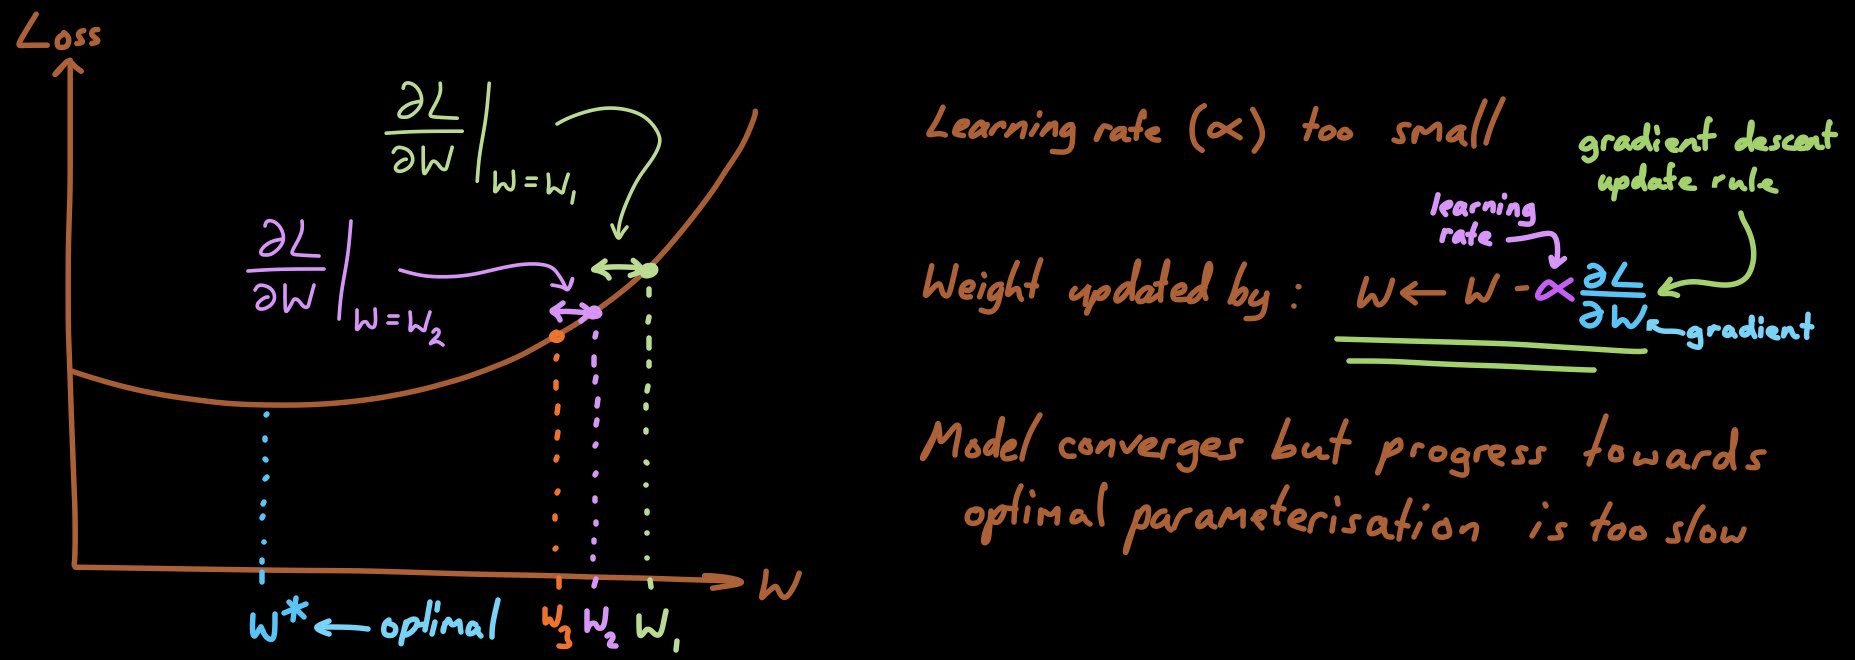 Loss
∂L/∂W | W=W₁
∂L/∂W | W=W₂
W* ← optimal
W₃
W₂
W₁
W
Learning rate (∝) too small
gradient descent
update rule
learning
rate
Weight updated by : W ← W - ∝ ∂L/∂W
gradient
Model converges but progress towards
optimal parameterisation is too slow